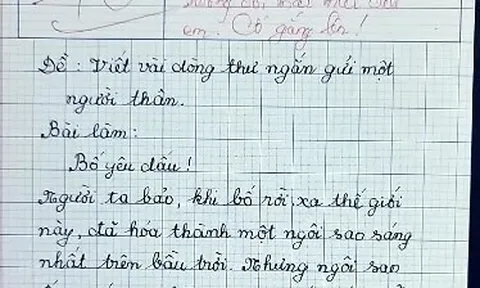 em. Cố gắng lên!
Đề: Viết vài dòng thư ngắn gửi một
người thân.
Bài làm:
Bố yêu dấu!
Người ta bảo, khi bố rời xa thế giới
này, đã hóa thành một ngôi sao sáng
nhất trên bầu trời. Nhưng ngôi sao